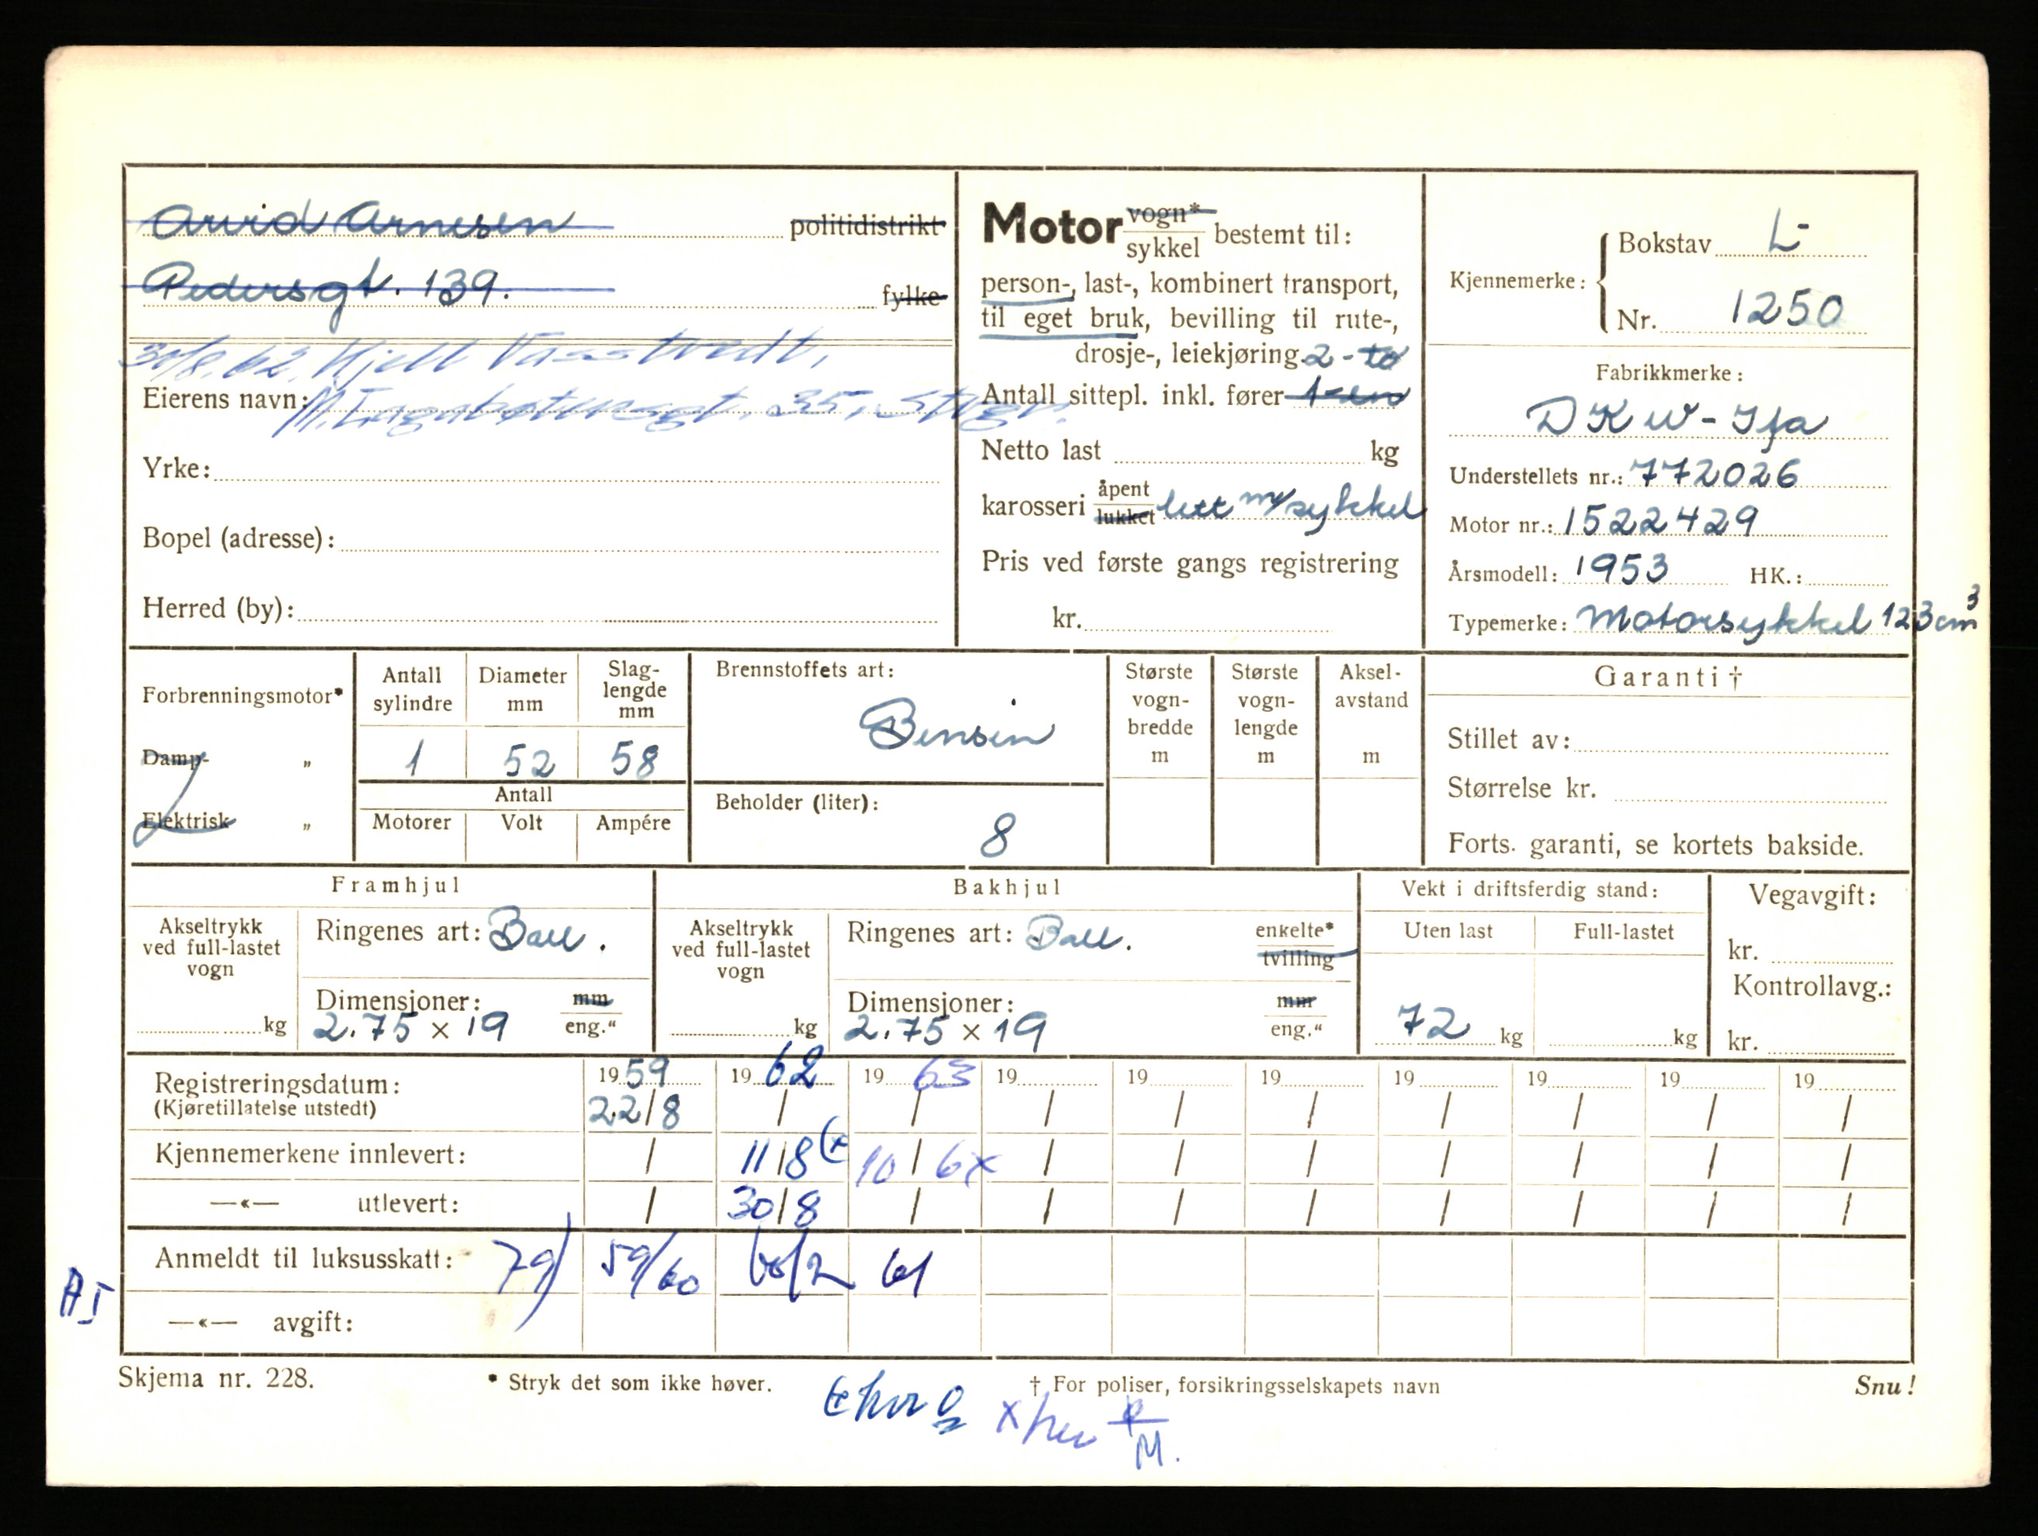 Arvid Arnesen politidistrikt
Pedersgt. 139. fylke
30/8.62. Kjell
Eierens navn: 35, Stvgr.
Yrke:
Bopel (adresse):
Herred (by):
Motor vogn*
sykkel bestemt til:
person-, last-, kombinert transport,
til eget bruk, bevilling til rute-,
drosje-, leiekjøring. 2-to
Antall sittepl. inkl. fører 1-en
Netto last kg
karosseri åpent
lukket lett m/sykkel
Pris ved første gangs registrering
kr.
Kjennemerke: Bokstav L-
Nr. 1250
Fabrikkmerke:
DKW-Ifa
Understellets nr.: 772026
Motor nr.: 1522429
Årsmodell: 1953 HK.:
Typemerke: Motorsykkel 123 cm³
Forbrenningsmotor*
Damp- „
Elektrisk „
Antall sylindre
1
Diameter mm
52
Slaglengde mm
58
Antall
Motorer Volt Ampére
Brennstoffets art:
Bensin
Beholder (liter):
8
Største vogn-bredde m
Største vogn-lengde m
Aksel-avstand m
Garanti †
Stillet av:
Størrelse kr.
Forts. garanti, se kortets bakside.
Framhjul
Akseltrykk ved full-lastet vogn
kg
Ringenes art: Ball.
Dimensjoner: mm
2.75 × 19 eng."
Bakhjul
Akseltrykk ved full-lastet vogn
kg
Ringenes art: Ball. enkelte*
tvilling
Dimensjoner: mm
2.75 × 19 eng."
Vekt i driftsferdig stand:
Uten last Full-lastet
72 kg kg
Vegavgift:
kr.
Kontrollavg.:
kr.
Registreringsdatum: 1959 1962 1963 19 19 19 19 19 19 19
(Kjøretillatelse utstedt) 22/8 / / / / / / / / /
Kjennemerkene innlevert: / 11/8 (x 10/6x / / / / / / /
—«— utlevert: / 30/8 / / / / / / / /
Anmeldt til luksusskatt: 79) 59/60 60/2 61
—«— avgift:
Skjema nr. 228. * Stryk det som ikke høver. † For poliser, forsikringsselskapets navn Snu!